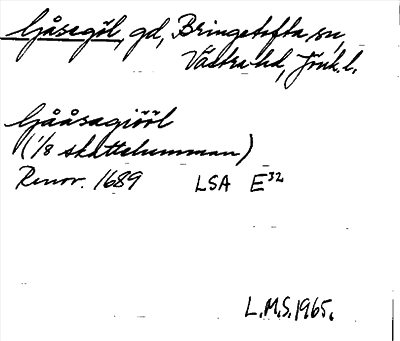 Gåsegöl, gd, Bringetofta sn,
Västra hd, Jönk. l.
Gååsagiööl
(1/8 skattehemman)
Renov. 1689 LSA E³²
L.M.S. 1965.